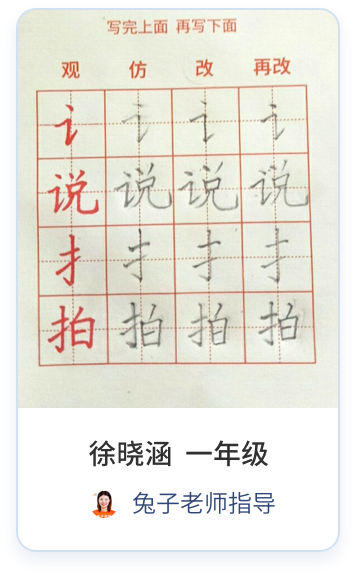 写完上面 再写下面
观 仿 改 再改
讠 讠 讠 讠
说 说 说 说
扌 扌 扌 扌
拍 拍 拍 拍
徐晓涵 一年级
兔子老师指导